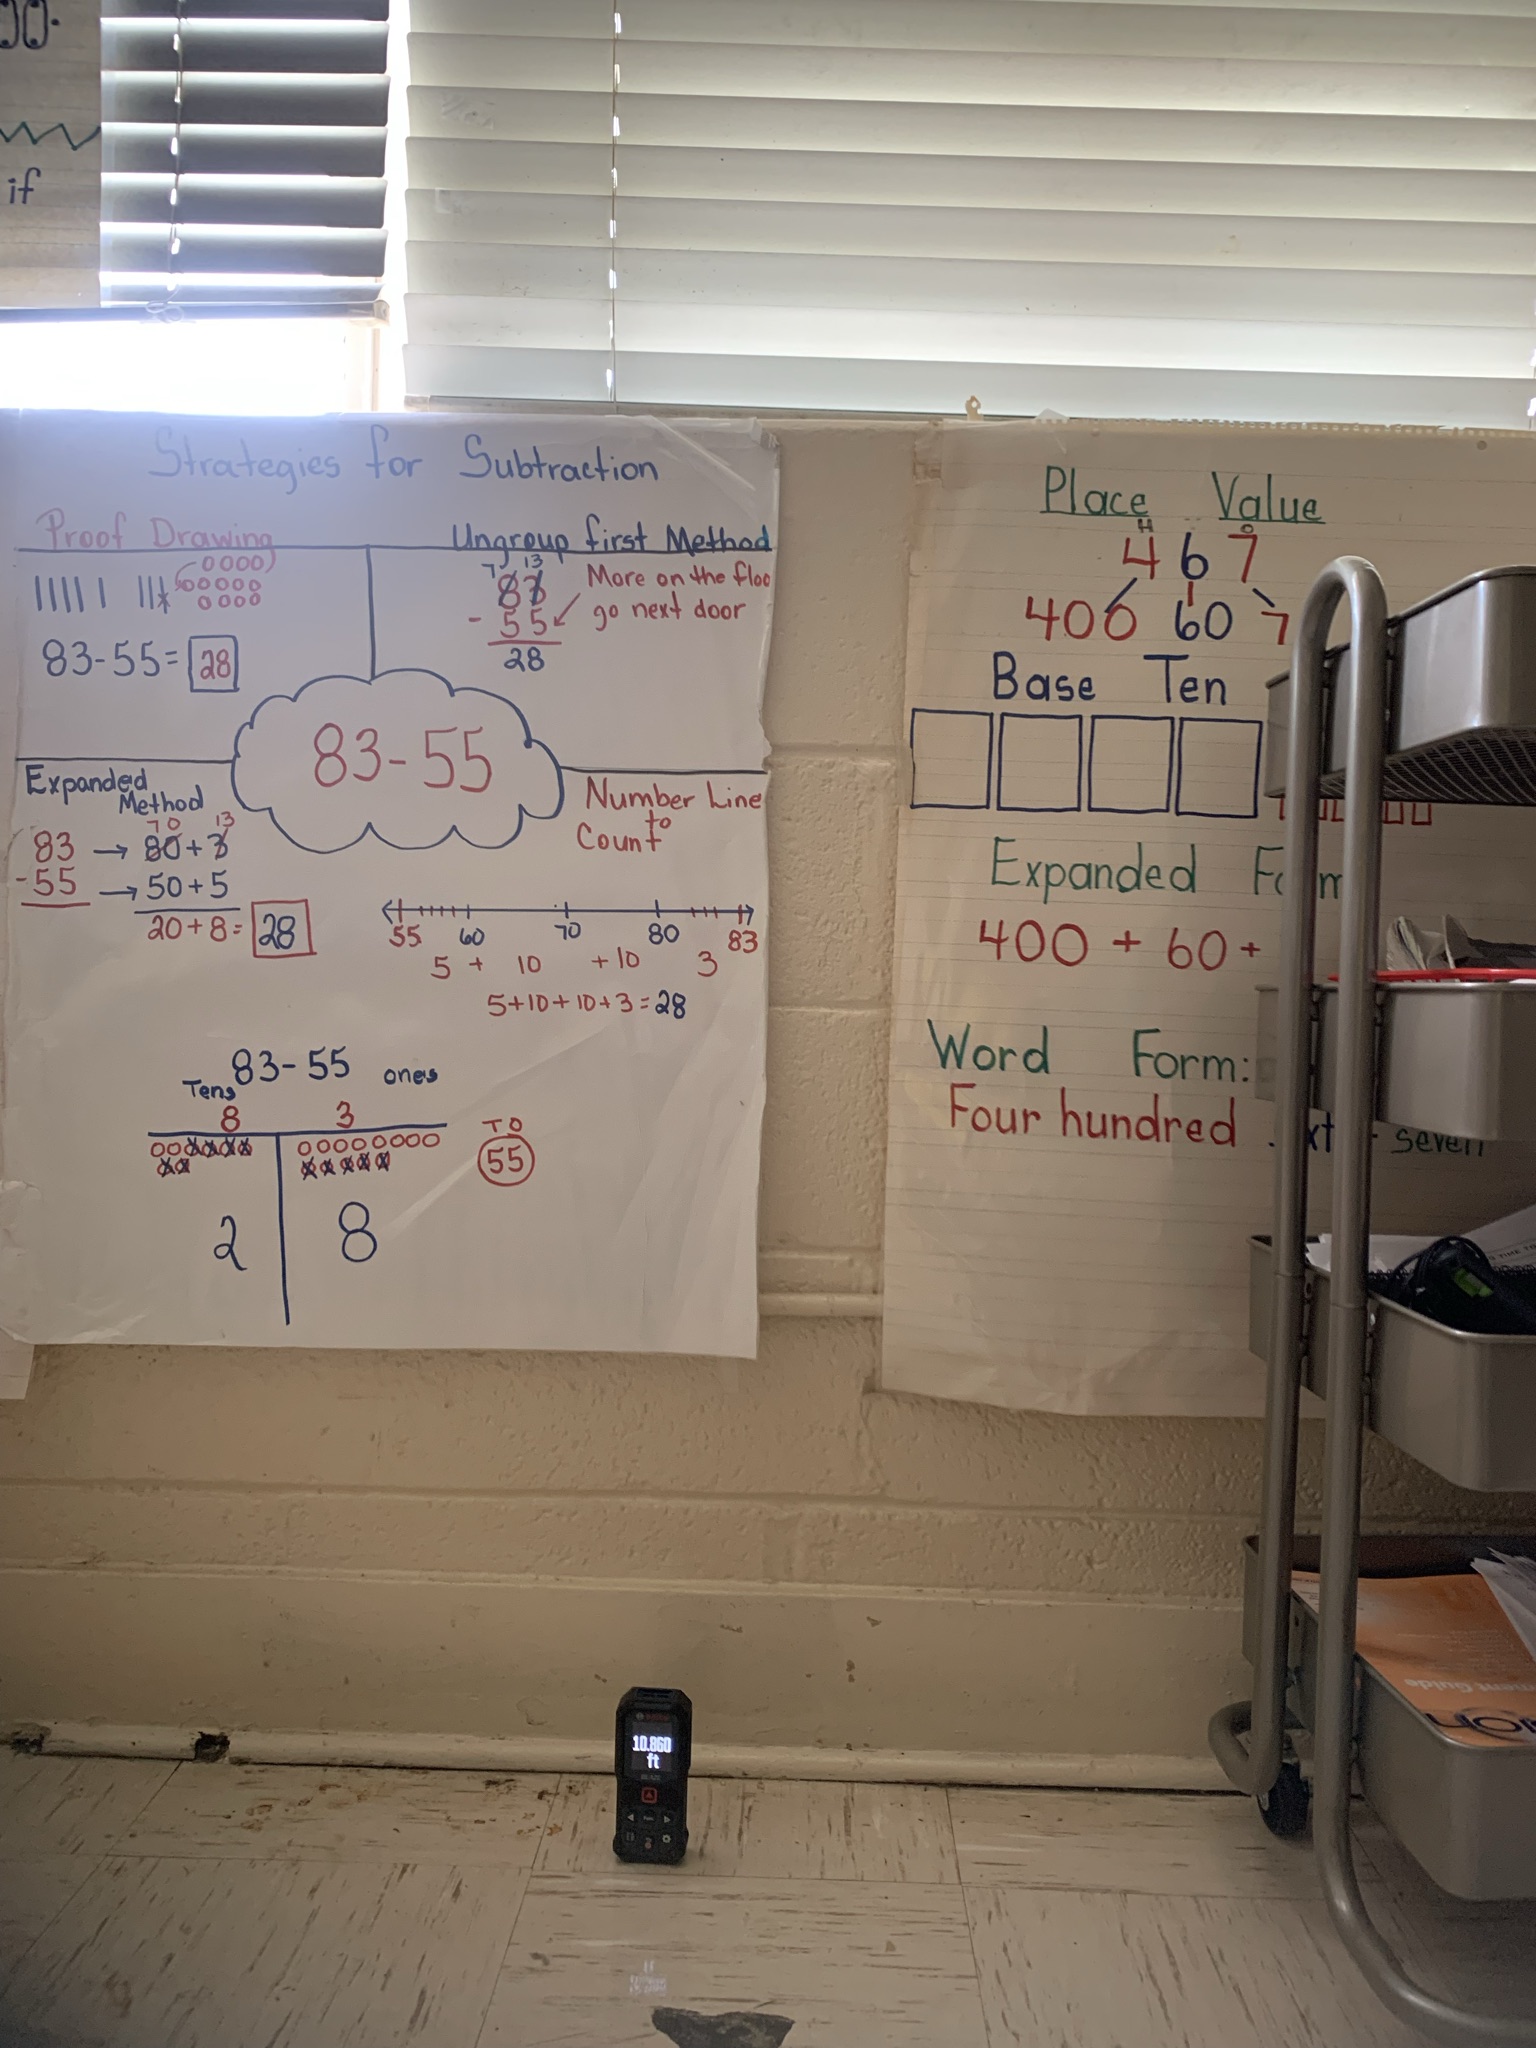 if
Strategies for Subtraction
Proof Drawing
83-55= 28
Ungroup first Method
7 13
83
- 55
28
More on the floo
go next door
83-55
Expanded
Method
70 13
83 → 80+3
-55 → 50+5
20+8= 28
Number Line
to
Count
55 60 70 80 83
5 + 10 +10 3
5+10+10+3=28
83-55
Tens ones
8 3
T O
55
2 8
Place Value
H O
4 6 7
400 60 7
Base Ten
Expanded
400 + 60 +
Word Form:
Four hundred
seven
10.860
ft
ment Guide